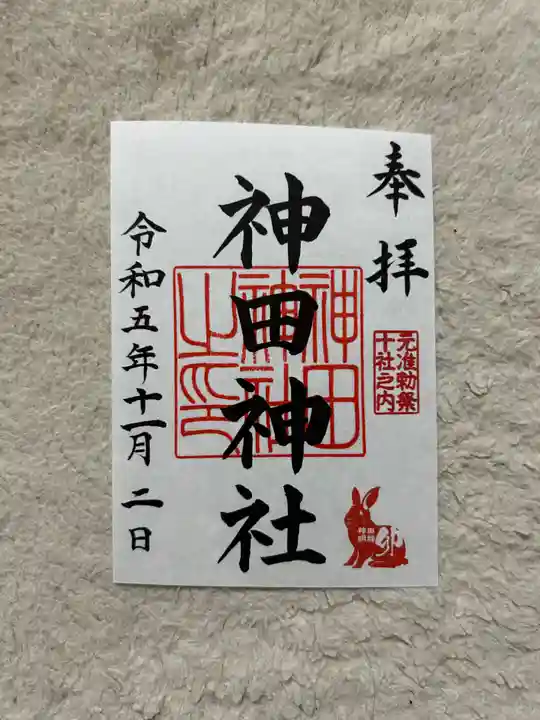 奉拝
元准勅祭
十社之内
卯
神田神社
神田
神社
之印
令和五年十一月二日